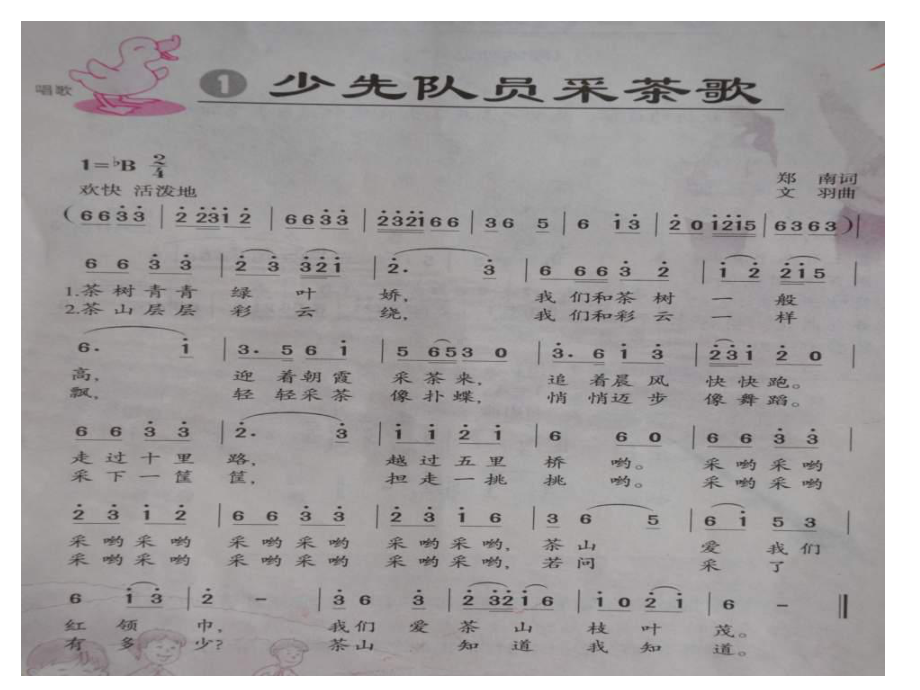 唱歌
1 少先队员采茶歌
1=♭B 2/4
欢快 活泼地
郑 南词
文 羽曲
(6 6 3̇ 3̇ | 2̇ 2̇3̇1̇ 2̇ | 6 6 3̇ 3̇ | 2̇3̇2̇1̇ 6 6 | 3 6 5 | 6 1̇ 3̇ | 2̇ 0 1̇2̇1̇5 | 6 3 6 3)|
6 6 3̇ 3̇ | 2̇ 3̇ 3̇2̇1̇ | 2̇. 3̇ | 6 6 6 3̇ 2̇ | 1̇ 2̇ 2̇1̇5 |
1.茶 树 青 青 绿 叶 娇, 我 们和茶 树 一 般
2.茶 山 层 层 彩 云 绕, 我 们和彩 云 一 样
6. 1̇ | 3. 5 6 1̇ | 5 653 0 | 3̇. 6 1̇ 3̇ | 2̇3̇1̇ 2̇ 0 |
高, 迎 着朝 霞 采 茶 来, 追 着晨 风 快 快 跑。
飘, 轻 轻采 茶 像 扑 蝶, 悄 悄迈 步 像 舞 蹈。
6 6 3̇ 3̇ | 2̇. 3̇ | 1̇ 1̇ 2̇ 1̇ | 6 6 0 | 6 6 3̇ 3̇ |
走 过 十 里 路, 越 过 五 里 桥 哟。 采 哟 采 哟
采 下 一 筐 筐, 担 走 一 挑 挑 哟。 采 哟 采 哟
2̇ 3̇ 1̇ 2̇ | 6 6 3̇ 3̇ | 2̇ 3̇ 1̇ 6 | 3 6 5 | 6 1̇ 5 3 |
采 哟 采 哟 采 哟 采 哟 采 哟 采 哟, 茶 山 爱 我 们
采 哟 采 哟 采 哟 采 哟 采 哟 采 哟, 若 问 采 了
6 1̇ 3̇ | 2̇ – | 3̇ 6 3̇ | 2̇ 3̇2̇1̇6 | 1̇ 0 2̇ 1̇ | 6 – ‖
红 领 巾, 我 们 爱 茶 山 枝 叶 茂。
有 多 少? 茶 山 知 道 我 知 道。